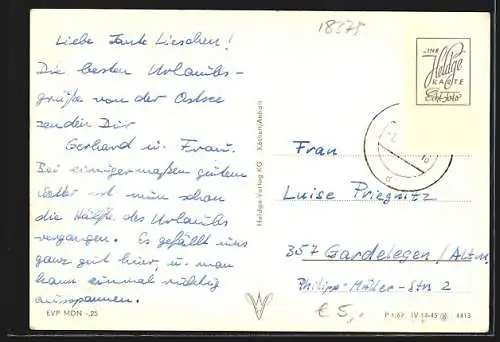 18375
Liebe Tante Lieschen!
Die besten Urlaubs-
grüße von der Ostsee
senden Dir
Gerhard u. Frau.
Bei einigermaßen gutem
Wetter ist nun schon
die Hälfte des Urlaubs
vergangen. Es gefällt uns
ganz gut hier, u. man
kann einmal richtig
ausspannen.
EVP MDN -,25
Heldge-Verlag KG Köthen/Anhalt
Heldge
KARTE
Echt Foto
Frau
Luise Priegnitz
357 Gardelegen / Altm.
Philipp-Müller-Str. 2
€ 5,-
P 1/67 IV-14-45 4413